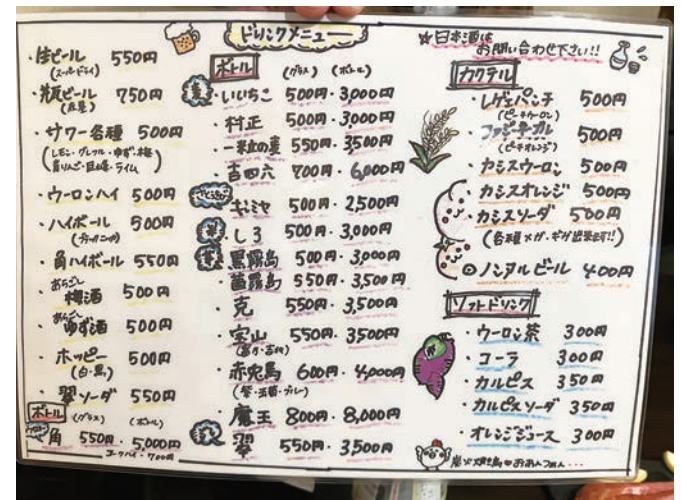 ドリンクメニュー
☆日本酒は
お問い合わせ下さい!!
・生ビール 550円
(スーパードライ)
・瓶ビール 750円
・サワー各種 500円
(レモン・グレフル・ゆず・梅
青りんご・巨峰・ライム)
・ウーロンハイ 500円
・ハイボール 500円
・角ハイボール 550円
・あらごし梅酒 500円
・あらごしゆず酒 500円
・ホッピー 500円
(白・黒)
・翠ソーダ 550円
ボトル (グラス) (ボトル)
角 550円・5,000円
コークハイ・700円
ボトル (グラス) (ボトル)
麦 ・いいちこ 500円・3,000円
・村正 500円・3,000円
・一粒の麦 550円・3500円
・吉四六 700円・6,000円
・キンミヤ 500円・2,500円
米 ・しろ 500円・3,000円
・黒霧島 500円・3,000円
・茜霧島 550円・3,500円
・克 550円・3,500円
・宝山 550円・3500円
・赤兎馬 600円・4,000円
(紫・玉茜・ブルー)
・魔王 800円・8,000円
翠 550円・3,500円
カクテル
・レゲエパンチ 500円
(ピーチウーロン)
・ファジーネーブル 500円
(ピーチオレンジ)
・カシスウーロン 500円
・カシスオレンジ 500円
・カシスソーダ 500円
(各種メガ・ギガ出来ます!!)
◎ノンアルビール 400円
ソフトドリンク
・ウーロン茶 300円
・コーラ 300円
・カルピス 350円
・カルピスソーダ 350円
・オレンジジュース 300円
炭火焼き鳥